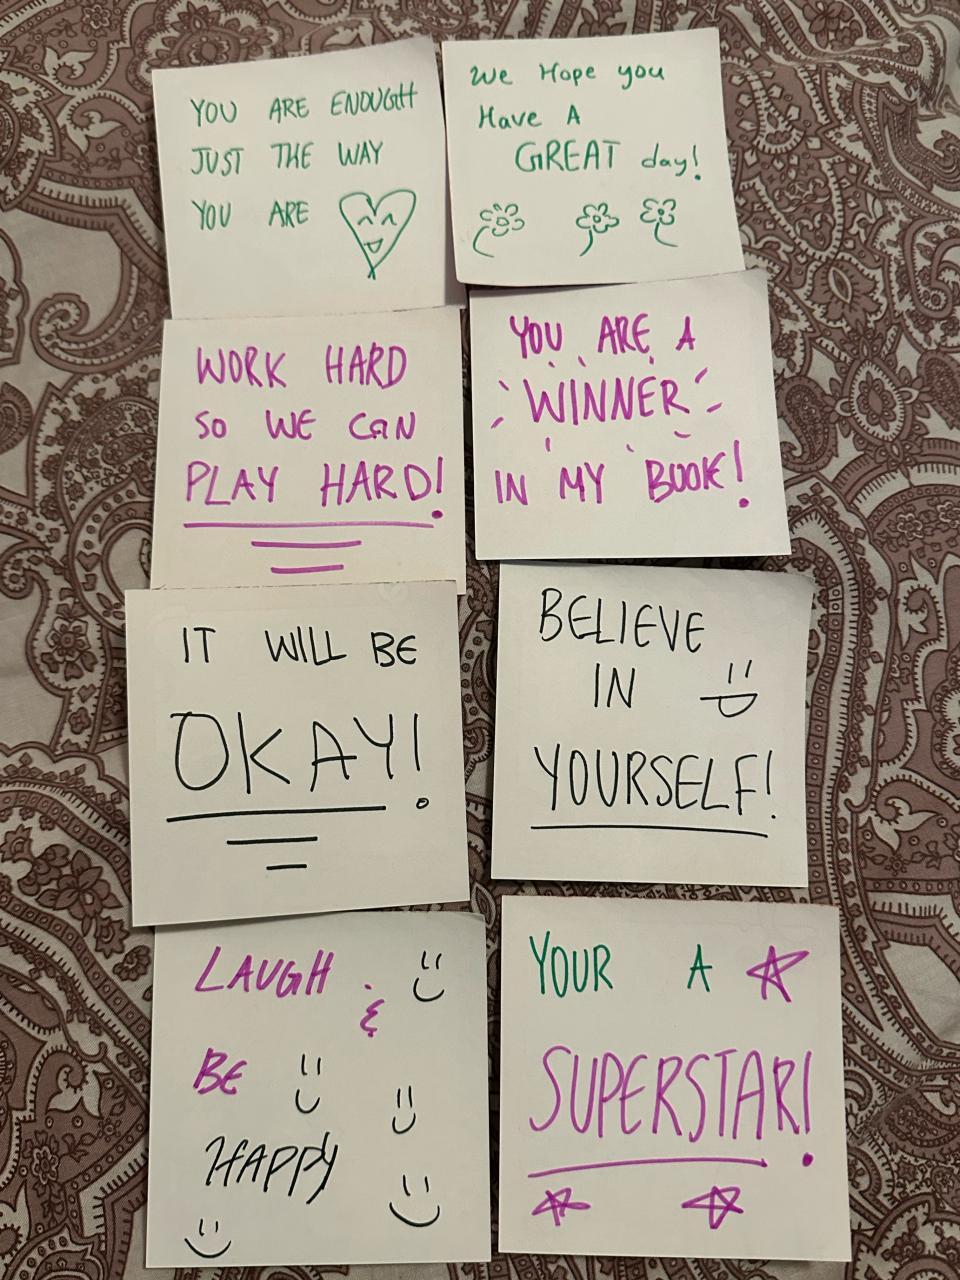 YOU ARE ENOUGH
JUST THE WAY
YOU ARE
We Hope you
Have A
GREAT day!
WORK HARD
SO WE CAN
PLAY HARD!
YOU ARE A
WINNER
IN MY BOOK!
IT WILL BE
OKAY!
BELIEVE
IN
YOURSELF!
LAUGH
&
BE
HAPPY
YOUR A
SUPERSTAR!